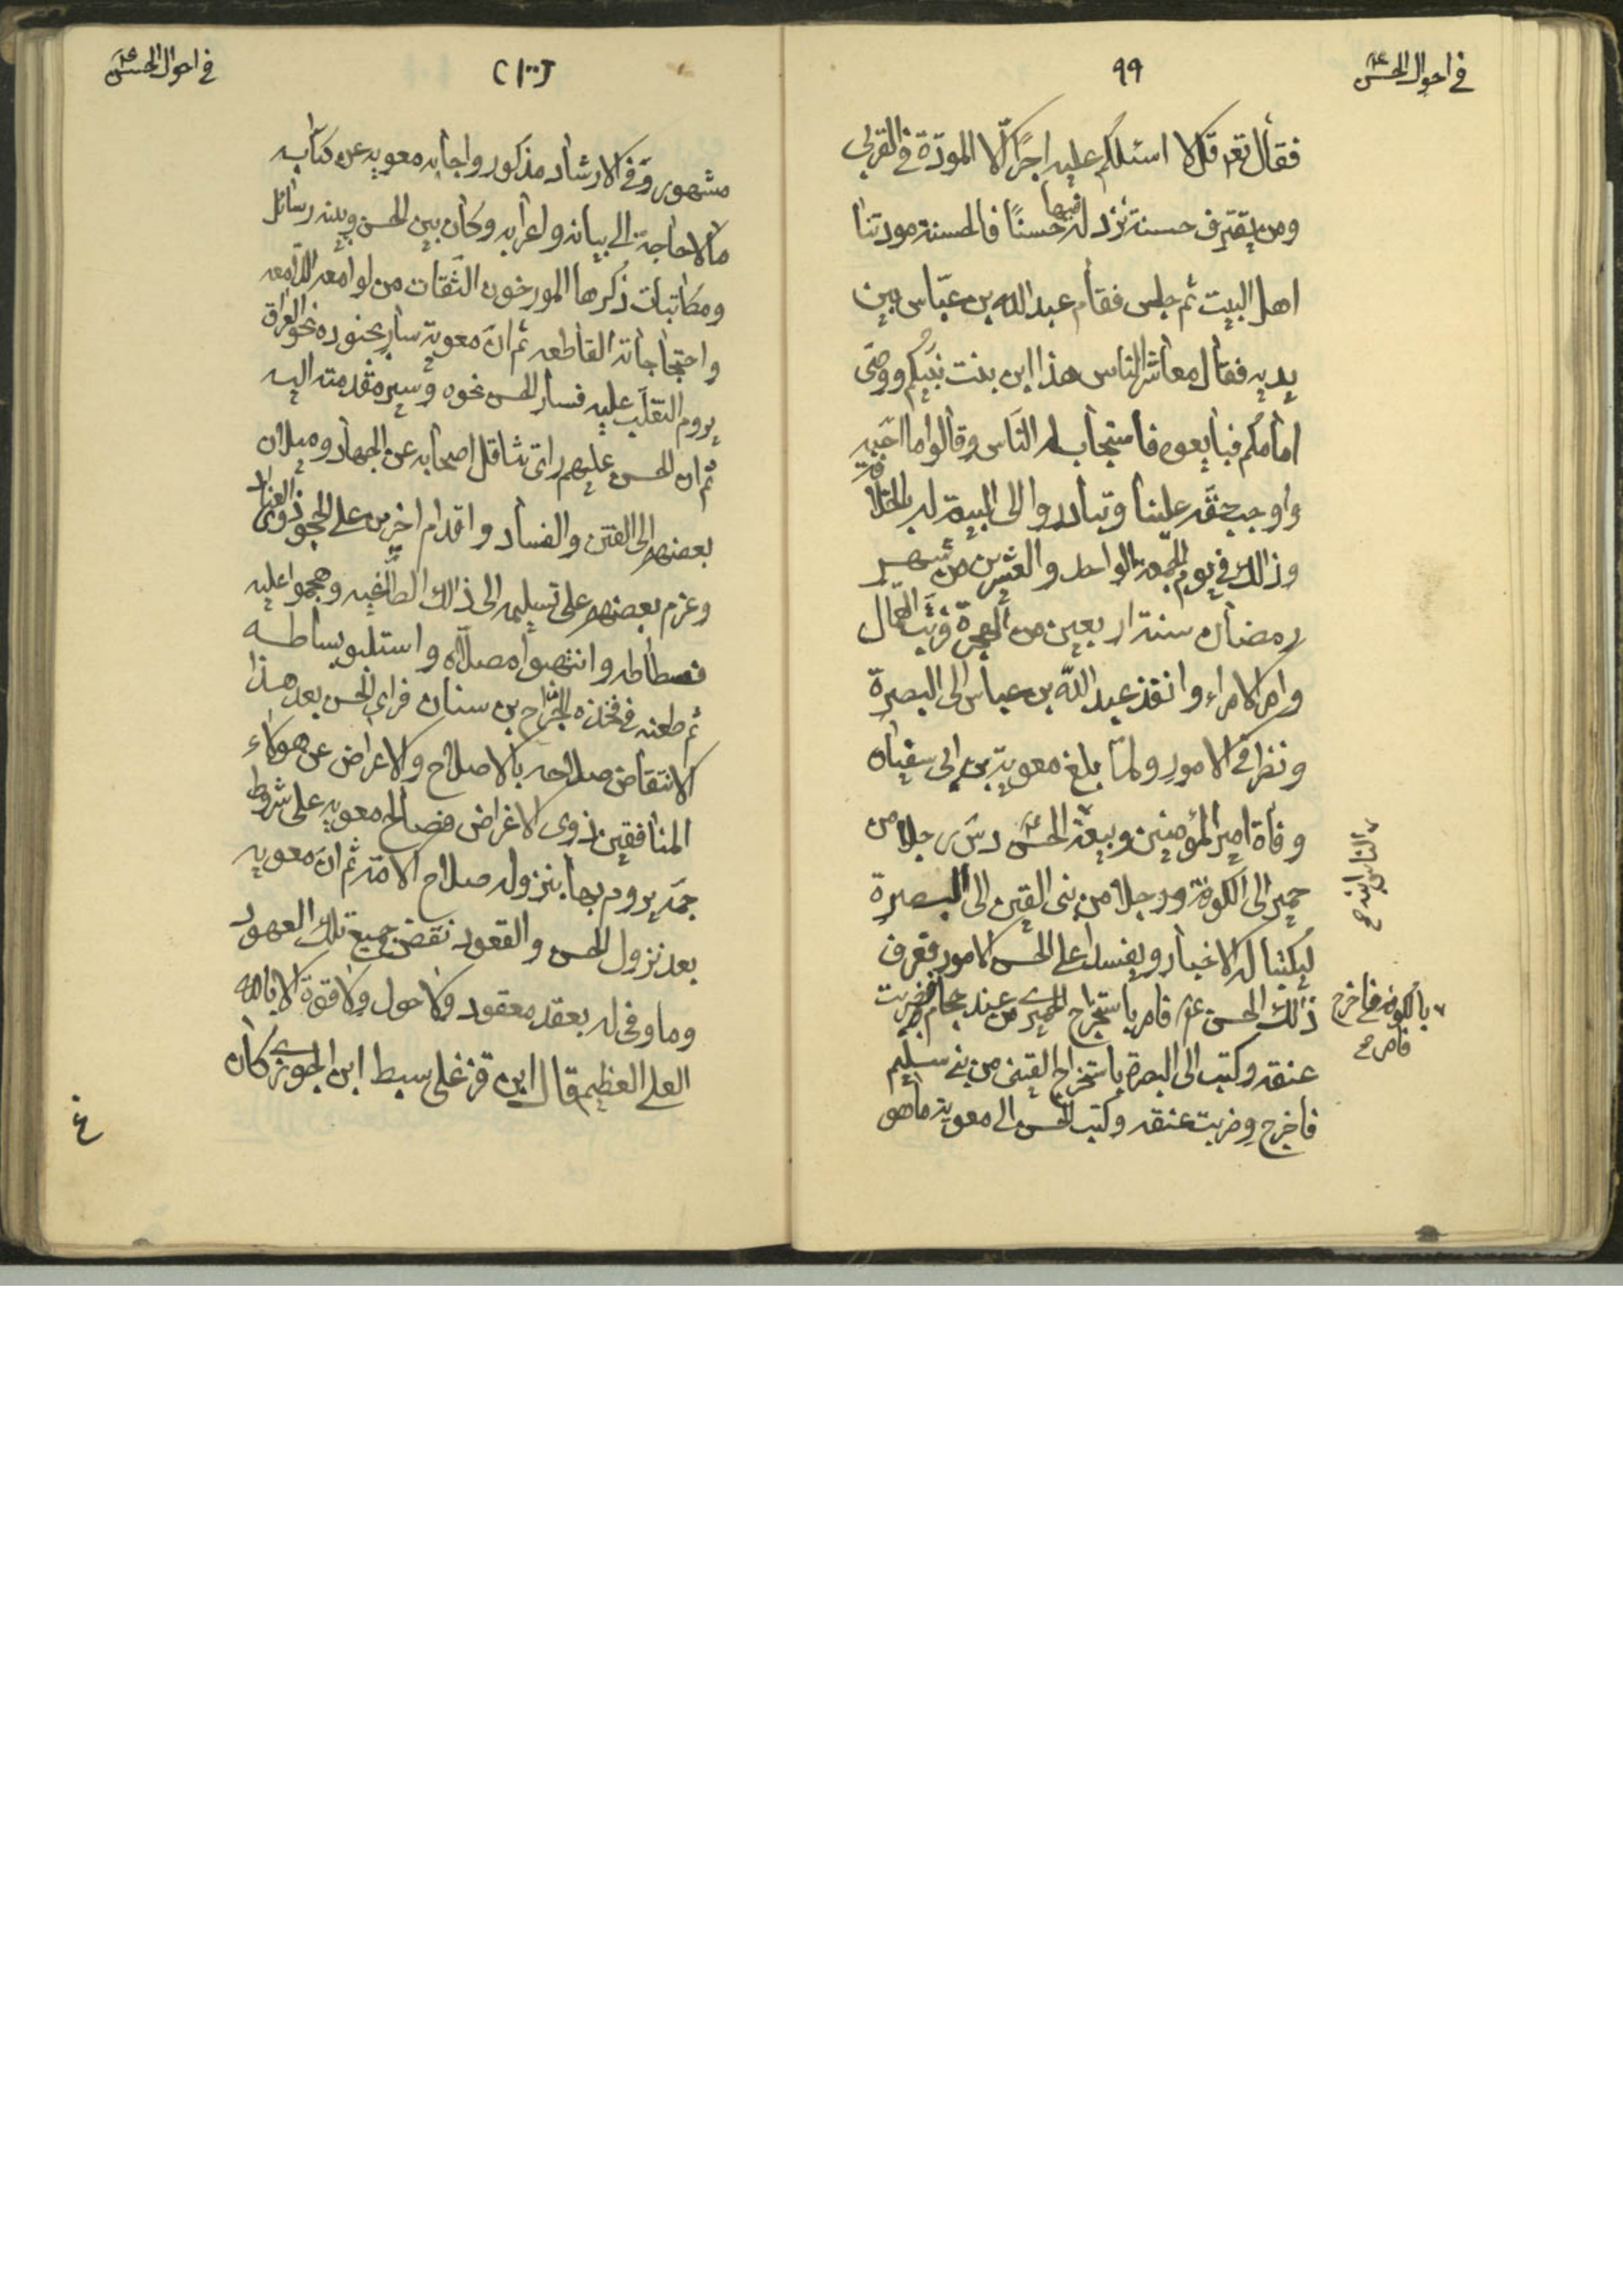 في احوال الحسن ع
٩٩
فقال تعم قل لا اسئلكم عليه اجرًا الّا المودّة في القربى
ومن يقترف حسنة نزد له فيها حسنًا فالحسنة مودتنا
اهل البيت ثم جلس فقام عبد الله بن عبّاس بين
يديه فقال معاشر الناس هذا ابن بنت نبيّكم ووصّى
امامكم فبايعوه فاستجاب له النّاس وقالوا ما احبّه
واوجب حقّه علينا وتبادروا الى البيعة له بالخلافة
وذالك في يوم الجمعة الواحد والعشرين من شهر
رمضان سنة اربعين من الهجرة فرتّب العمّال
وامر الامراء وانفذ عبد الله بن عباس الى البصرة
ونظر في الامور ولمّا بلغ معوية بن ابي سفيان
وفاة امير المؤمنين وبيعة الحسن ع دسّ رجلا من
الناس ابنه صح
حمير الى الكوفة ورجلا من بني القين الى البصرة
ليكتبا له الاخبار ويفسدا على الحسن الامور فعرف
ذلك الحسن ع فامر باستخراج الحميري من عند حجام فضربت
بالكوفة فاخرج فامر صح
عنقه وكتب الى البصرة باستخراج القيني من بني سليم
فاخرج وضربت عنقه وكتب الحسن الى معوية ما هو
في احوال الحسن ع
(١٠٠)
مشهور وفي الارشاد مذكور واجابه معويه عن كتابه
ما لا حاجة الى بيانه واعرابه وكان بين الحسن وبينه رسائل
ومكاتبات ذكرها المورخون الثّقات من لوامعه اللّامعه
واحتجاجاته القاطعه ثم انّ معوية سار بجنوده نحو العراق
يروم التغلّب عليه فسار الحسن نحوه وسير مقدمته اليه
ثم ان الحسن عليهم راى تثاقل اصحابه عن الجهاد وميلان
بعضهم الى الفتن والفساد واقدام اخرين على الحجو ذوى العناد
وعزم بعضهم على تسليمه الى ذالك الطّاغيه وهجموا عليه
فسطاطه وانتهبوا مصلّاه واستلبو بساطه
ثم طعنه في فخذه الجرّاح بن سنان فراى الحسن بعد هذا
الانتقاض صلاحه بالاصلاح والاعراض عن هولاء
المنافقين ذوى الاغراض فصالح معويه على شروط
جمّه يروم بها بنزوله صلاح الامّة ثم انّ معويه
بعد نزول الحسن والقعود نقض جميع تلك العهود
وما وفى له بعقد معقود ولا حول ولا قوة الا بالله
العلي العظيم قال ابن قزغلى سبط ابن الجوزي كان